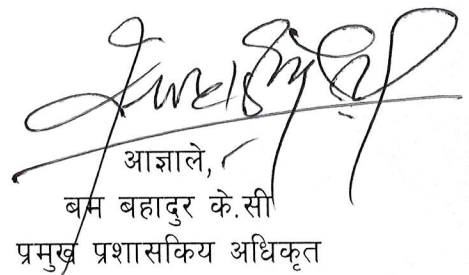 आज्ञाले,
बम बहादुर के.सी
प्रमुख प्रशासकिय अधिकृत